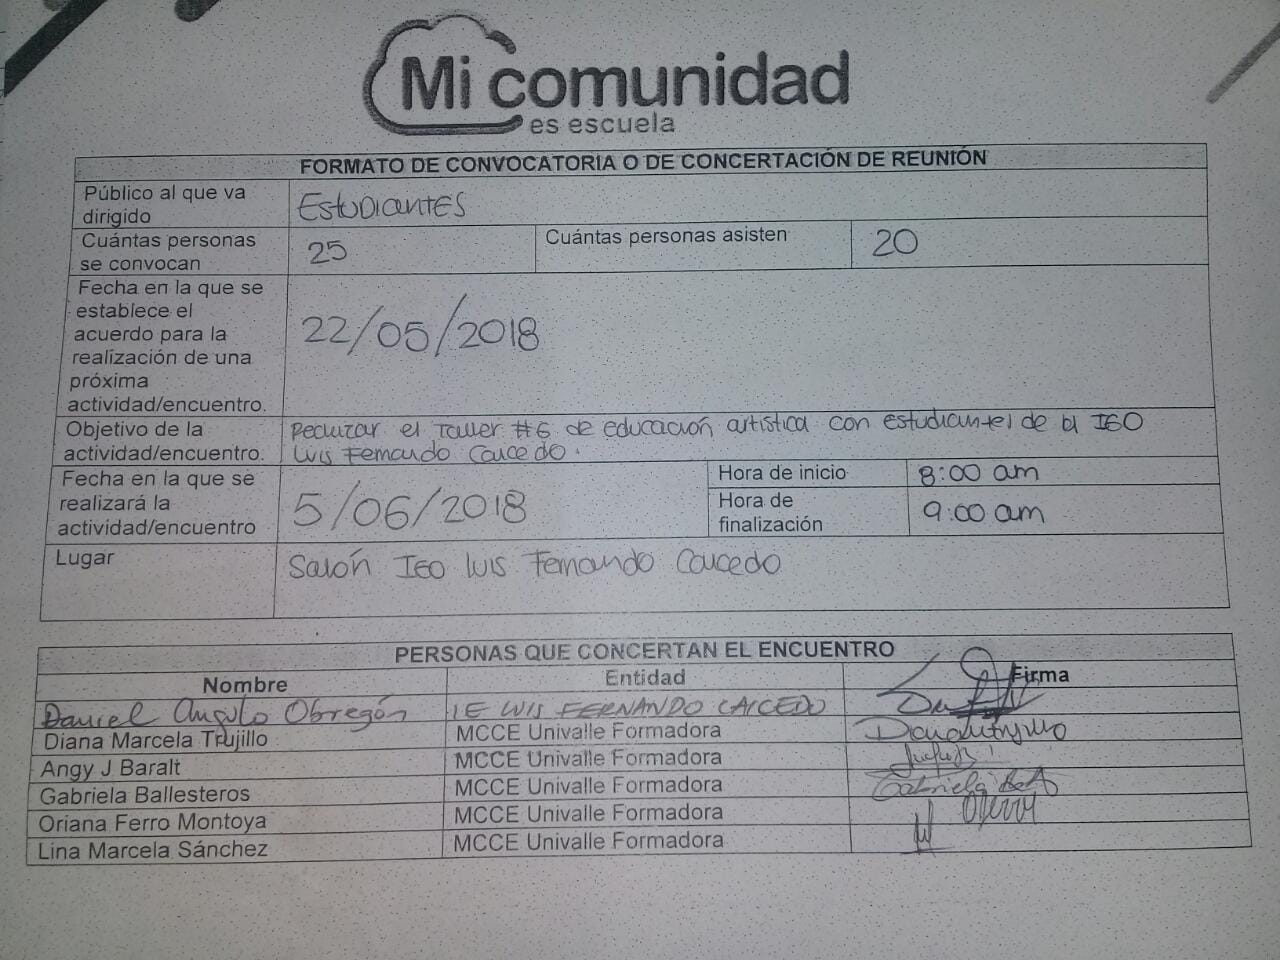 Mi comunidad
es escuela
FORMATO DE CONVOCATORIA O DE CONCERTACIÓN DE REUNIÓN
Público al que va
dirigido
Estudiantes
Cuántas personas
se convocan
25
Cuántas personas asisten
20
Fecha en la que se
establece el
acuerdo para la
realización de una
próxima
actividad/encuentro.
22/05/2018
Objetivo de la
actividad/encuentro.
Realizar el Taller #6 de educación artística con estudiantes de la IEO
Luis Fernando Caicedo.
Fecha en la que se
realizará la
actividad/encuentro
5/06/2018
Hora de inicio
8:00 am
Hora de
finalización
9:00 am
Lugar
Salón IEO Luis Fernando Caicedo
PERSONAS QUE CONCERTAN EL ENCUENTRO
Nombre Entidad Firma
Daniel Angulo Obregón IE LUIS FERNANDO CAICEDO
Diana Marcela Trujillo MCCE Univalle Formadora
Angy J Baralt MCCE Univalle Formadora
Gabriela Ballesteros MCCE Univalle Formadora Gabriela
Oriana Ferro Montoya MCCE Univalle Formadora
Lina Marcela Sánchez MCCE Univalle Formadora